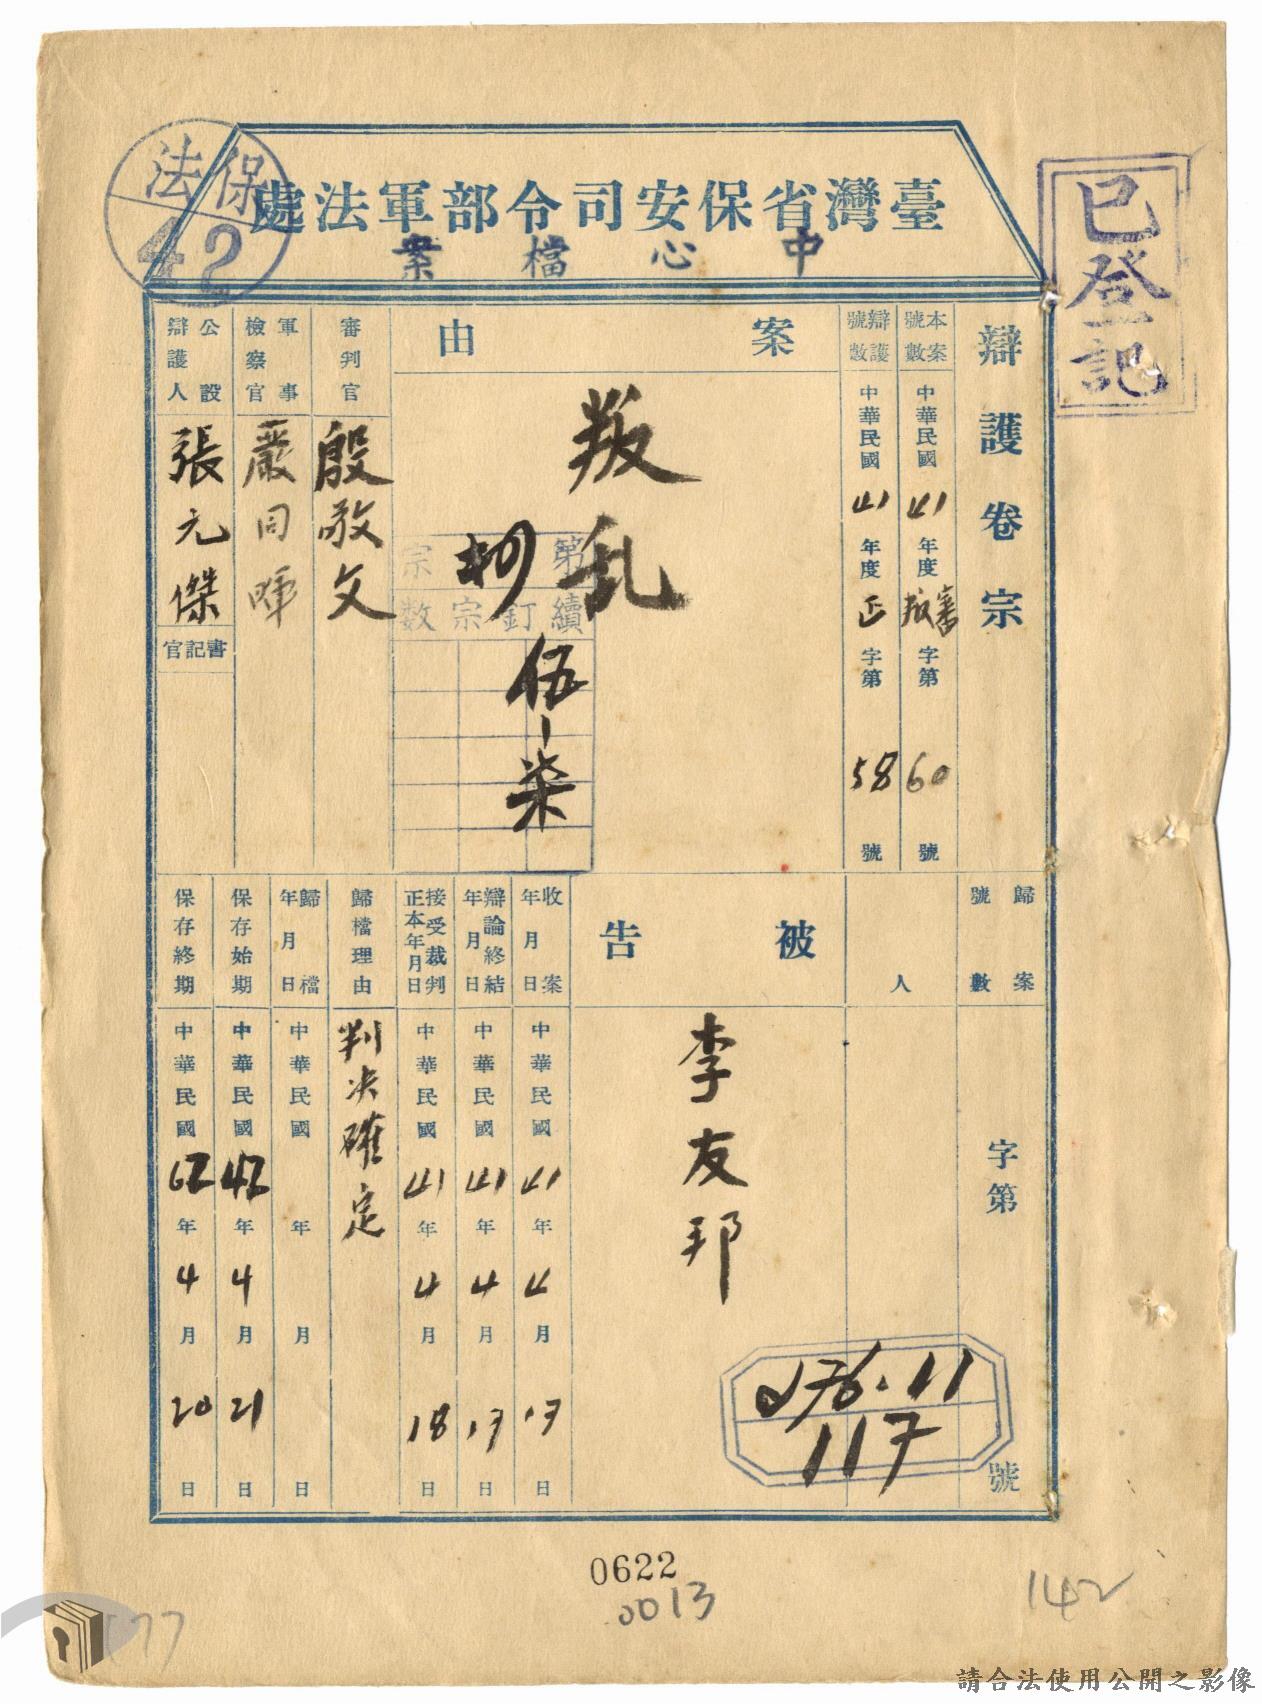 保法
42
臺灣省保安司令部軍法處
中心檔案
已登記
辯護卷宗
本案號數
中華民國41年度審叛字第60號
辯護號數
中華民國41年度正字第58號
案由
叛乱
第宗
續訂宗數
伍-柒
審判官
殷敬文
軍事檢察官
嚴同暉
公設辯護人
張元傑
書記官
歸案號數
字第號
被告人
李友邦
收案年月日
中華民國41年4月17日
辯論終結年月日
中華民國41年4月17日
接受裁判正本年月日
中華民國41年4月18日
歸檔理由
判決確定
歸檔年月日
中華民國年月日
保存始期
中華民國42年4月21日
保存終期
中華民國62年4月20日
276.11
117
0622
0013
142
177
請合法使用公開之影像